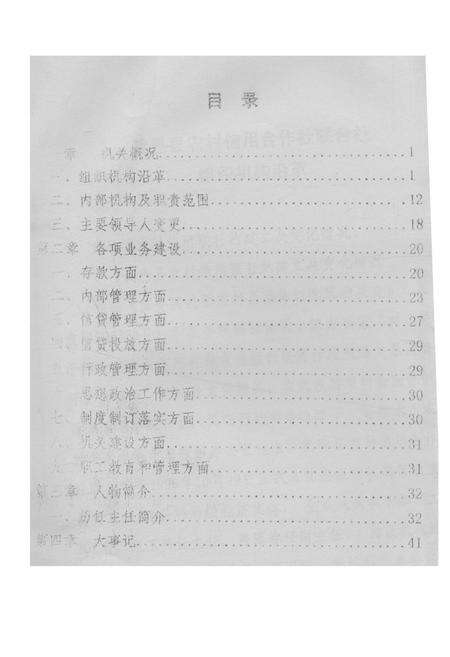 目 录
章 机关概况........................1
一、组织机构沿革........................1
二、内部机构及职责范围........................12
三、主要领导人变更........................18
第二章 各项业务建设........................20
一、存款方面........................20
二、内部管理方面........................23
三、信贷管理方面........................27
四、信贷投放方面........................29
五、行政管理方面........................29
思想政治工作方面........................30
七、制度制订落实方面........................30
八、机关建设方面........................31
九、职工教育和管理方面........................31
第三章 人物简介........................32
一、历任主任简介........................32
第四章 大事记........................41